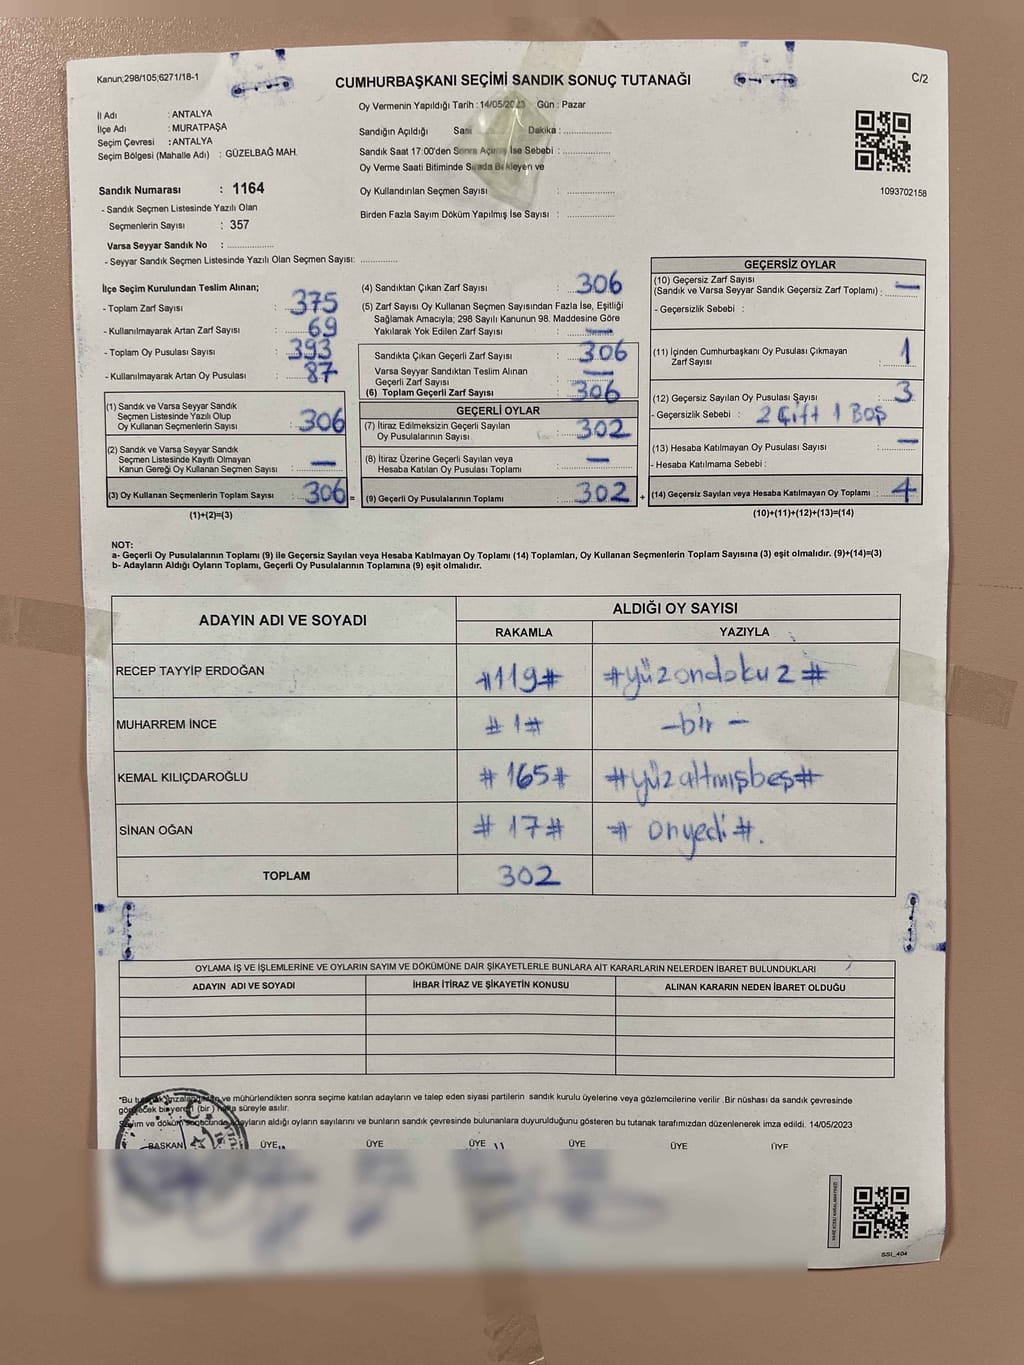 Kanun;298/105;6271/18-1
CUMHURBAŞKANI SEÇİMİ SANDIK SONUÇ TUTANAĞI
C/2
İl Adı : ANTALYA
İlçe Adı : MURATPAŞA
Seçim Çevresi : ANTALYA
Seçim Bölgesi (Mahalle Adı) : GÜZELBAĞ MAH.
Sandık Numarası : 1164
- Sandık Seçmen Listesinde Yazılı Olan
Seçmenlerin Sayısı : 357
Varsa Seyyar Sandık No : ..............
- Seyyar Sandık Seçmen Listesinde Yazılı Olan Seçmen Sayısı: ............
Oy Vermenin Yapıldığı Tarih : 14/05/2023 Gün : Pazar
Sandığın Açıldığı Dakika : ..............
Sandık Saat 17:00'den Sonra Açımış İse Sebebi : ..............
Oy Verme Saati Bitiminde Sırada Bekleyen ve
Oy Kullandırılan Seçmen Sayısı : ..............
Birden Fazla Sayım Döküm Yapılmış İse Sayısı : ..............
1093702158
İlçe Seçim Kurulundan Teslim Alınan;
- Toplam Zarf Sayısı : 375
- Kullanılmayarak Artan Zarf Sayısı : 69
- Toplam Oy Pusulası Sayısı : 393
- Kullanılmayarak Artan Oy Pusulası : 87
(1) Sandık ve Varsa Seyyar Sandık
Seçmen Listesinde Yazılı Olup
Oy Kullanan Seçmenlerin Sayısı : 306
(2) Sandık ve Varsa Seyyar Sandık
Seçmen Listesinde Kayıtlı Olmayan
Kanun Gereği Oy Kullanan Seçmen Sayısı : —
(3) Oy Kullanan Seçmenlerin Toplam Sayısı : 306 =
(1)+(2)=(3)
(4) Sandıktan Çıkan Zarf Sayısı : 306
(5) Zarf Sayısı Oy Kullanan Seçmen Sayısından Fazla İse, Eşitliği
Sağlamak Amacıyla; 298 Sayılı Kanunun 98. Maddesine Göre
Yakılarak Yok Edilen Zarf Sayısı : —
Sandıkta Çıkan Geçerli Zarf Sayısı : 306
Varsa Seyyar Sandıktan Teslim Alınan
Geçerli Zarf Sayısı : —
(6) Toplam Geçerli Zarf Sayısı : 306
GEÇERLİ OYLAR
(7) İtiraz Edilmeksizin Geçerli Sayılan
Oy Pusulasının Sayısı : 302
(8) İtiraz Üzerine Geçerli Sayılan veya
Hesaba Katılan Oy Pusulası Toplamı : —
(9) Geçerli Oy Pusulalarının Toplamı : 302 +
GEÇERSİZ OYLAR
(10) Geçersiz Zarf Sayısı
(Sandık ve Varsa Seyyar Sandık Geçersiz Zarf Toplamı) : —
- Geçersizlik Sebebi :
(11) İçinden Cumhurbaşkanı Oy Pusulası Çıkmayan
Zarf Sayısı : 1
(12) Geçersiz Sayılan Oy Pusulası Sayısı : 3
- Geçersizlik Sebebi : 2 Çift 1 Boş
(13) Hesaba Katılmayan Oy Pusulası Sayısı : —
- Hesaba Katılmama Sebebi :
(14) Geçersiz Sayılan veya Hesaba Katılmayan Oy Toplamı : 4
(10)+(11)+(12)+(13)=(14)
NOT:
a- Geçerli Oy Pusulalarının Toplamı (9) ile Geçersiz Sayılan veya Hesaba Katılmayan Oy Toplamı (14) Toplamları, Oy Kullanan Seçmenlerin Toplam Sayısına (3) eşit olmalıdır. (9)+(14)=(3)
b- Adayların Aldığı Oyların Toplamı, Geçerli Oy Pusulalarının Toplamına (9) eşit olmalıdır.
ADAYIN ADI VE SOYADI
ALDIĞI OY SAYISI
RAKAMLA YAZIYLA
RECEP TAYYİP ERDOĞAN #119# #yüzondokuz#
MUHARREM İNCE #1# -bir-
KEMAL KILIÇDAROĞLU #165# #yüzaltmışbeş#
SİNAN OĞAN #17# #onyedi#.
TOPLAM 302
OYLAMA İŞ VE İŞLEMLERİNE VE OYLARIN SAYIM VE DÖKÜMÜNE DAİR ŞİKAYETLERLE BUNLARA AİT KARARLARIN NELERDEN İBARET BULUNDUKLARI
ADAYIN ADI VE SOYADI İHBAR İTİRAZ VE ŞİKAYETİN KONUSU ALINAN KARARIN NEDEN İBARET OLDUĞU
*Bu ve mühürlendikten sonra seçime katılan adayların ve talep eden siyasi partilerin sandık kurulu üyelerine veya gözlemcilerine verilir .Bir nüshası da sandık çevresinde
(bir) hafta süreyle asılır.
Sayım ve döküm adayların aldığı oyların sayılarını ve bunların sandık çevresinde bulunanlara duyurulduğunu gösteren bu tutanak tarafımızdan düzenlenerek imza edildi. 14/05/2023
BAŞKAN ÜYE ÜYE ÜYE ÜYE ÜYE ÜYE
SSI_404